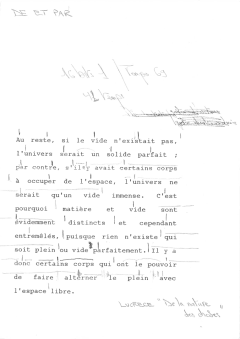 DE ET PAR
Temps 63
Au reste, si le vide n'existait pas,
l'univers serait un solide parfait ;
par contre, s'il y avait certains corps
à occuper de l'espace, l'univers ne
serait qu'un vide immense. C'est
pourquoi matière et vide sont
évidemment distincts et cependant
entremêlés, puisque rien n'existe qui
soit plein ou vide parfaitement. Il y a
donc certains corps qui ont le pouvoir
de faire alterner le plein avec
l'espace libre.
LUCRECE "De la nature
des choses"